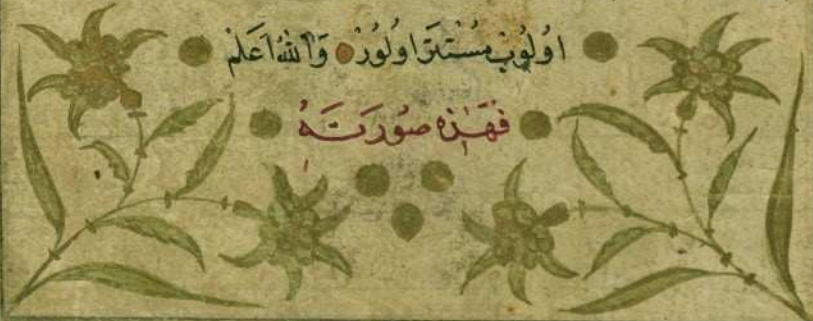 اولُوبْ مُسْتَتَرْ اولُورْ وَاللهُ اَعْلَمْ
فَهَذِهِ صُورَتَهُ